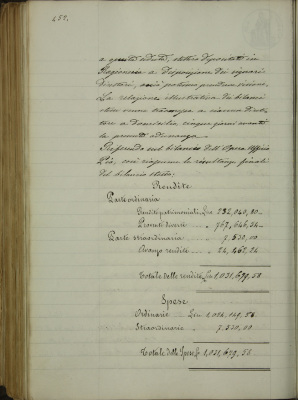 452.
a questo scheda, stettero depositati in
Ragioneria a disposizione dei signori
Direttori, a
La relazione illustrativa dei bilanci
venne trasmessa a ciascun Diret-
tore a domicilio, cinque giorni avanti
la presente adunanza.
Riferendo sul bilancio dell'Opera Uffici
Pia, così riepiloga le risultanze finali
del bilancio stesso:
Rendite
Parte ordinaria
Rendite patrimoniali Lire 232,040,80
Proventi diversi " 767,646,54
Parte straordinaria " 7.530,00
Avanzo rendite " 24,467,24
Totale delle rendite Lire 1,031,679,58
Spese
Ordinarie Lire 1,024,149,58
Straordinarie " 7.530,00
Totale delle Spese Lire 1,031,679,58